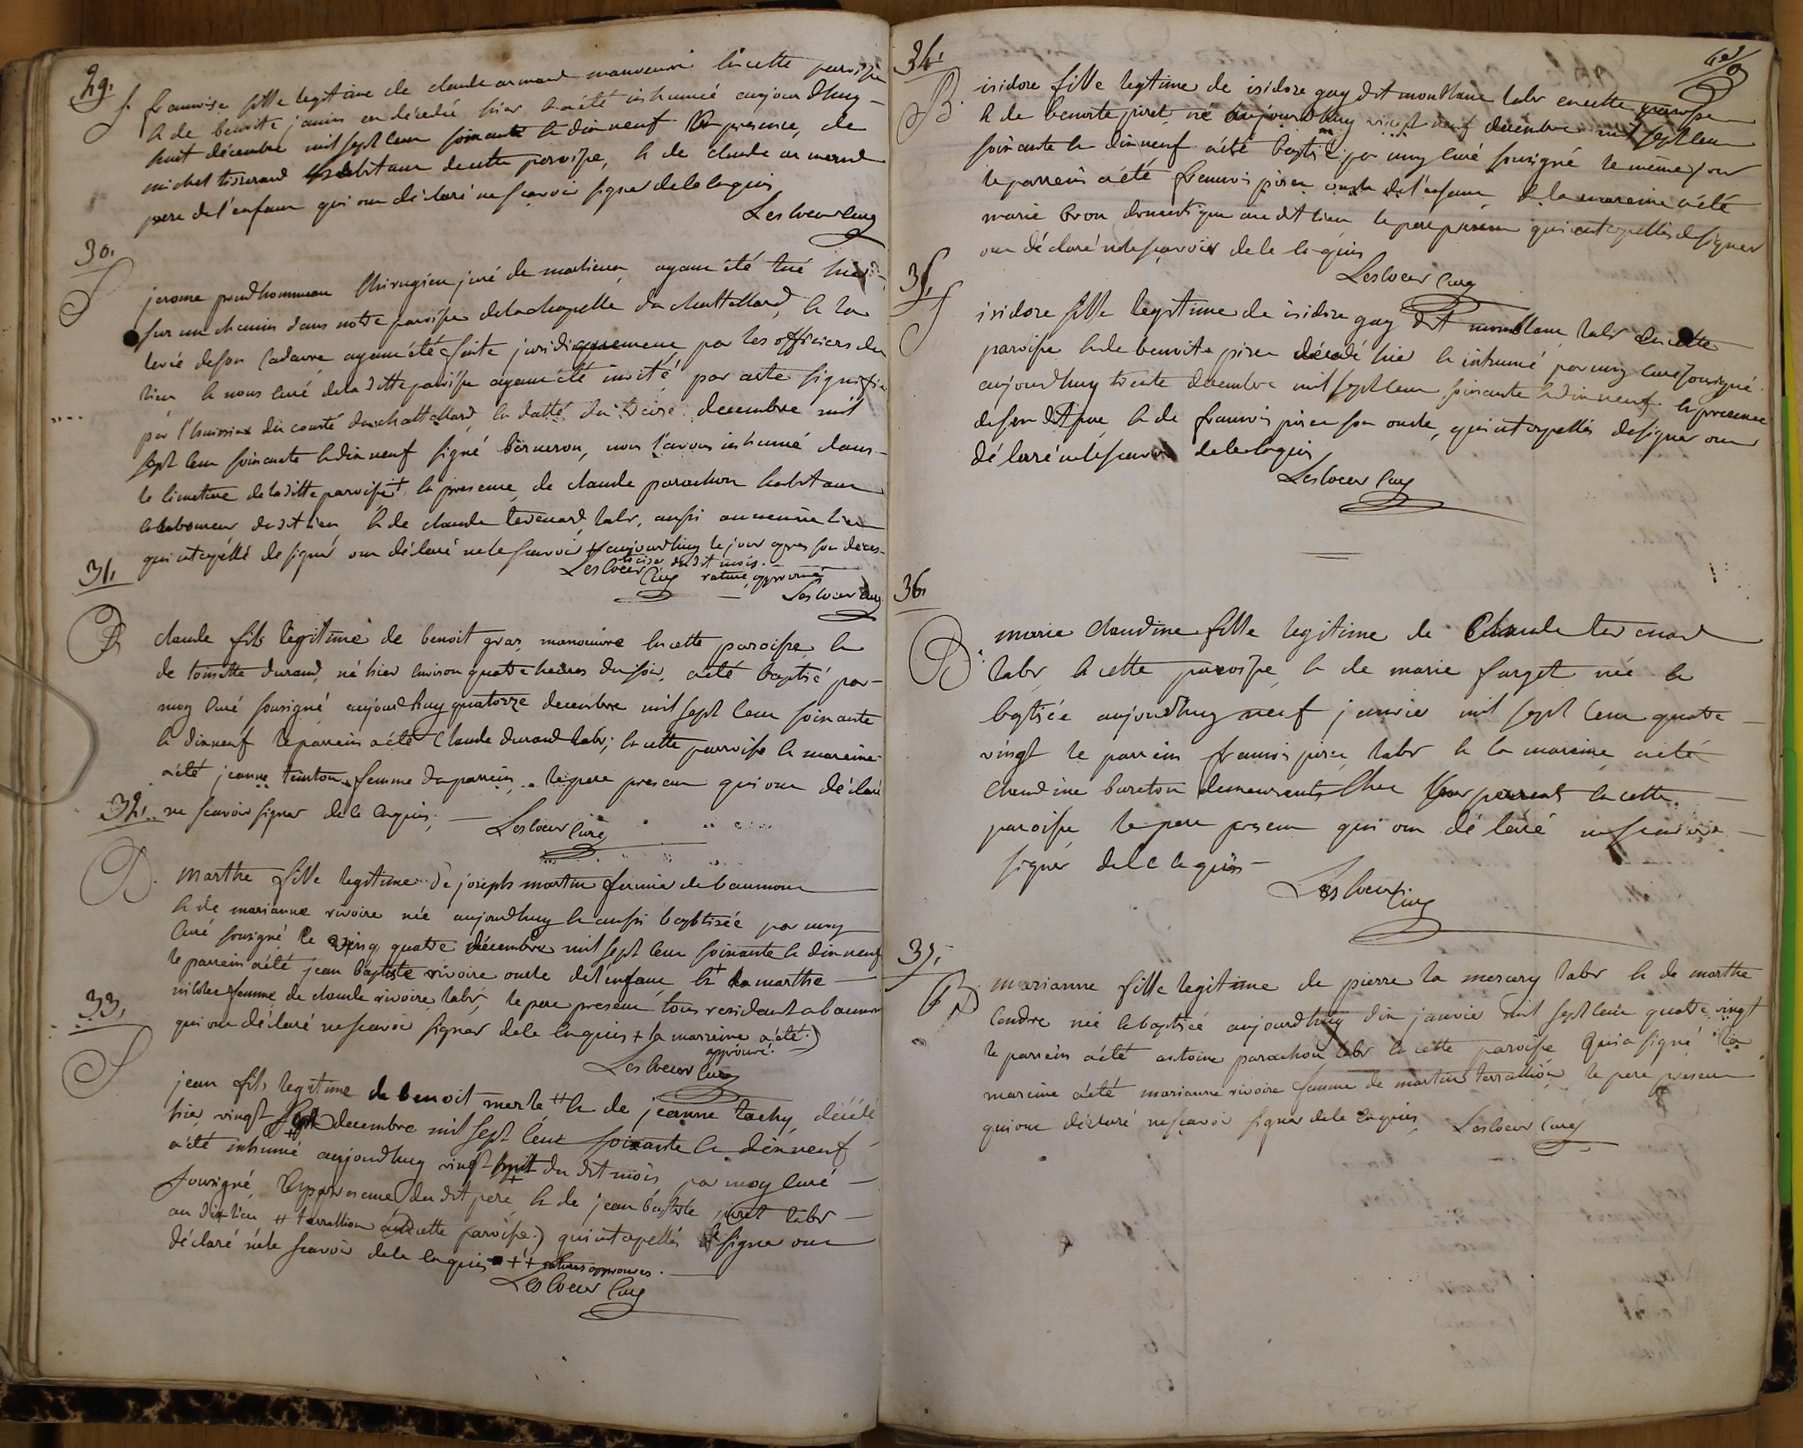 29.
S. francoise fille legitime de claude armand manoeuvre en cette paroisse
& de benoite janin decedé hier a été inhumée aujourdhuy
huit décembre mil sept cent soixante & dix neuf en presence de
michel tisserand habitant de cette paroisse, & de claude armand
pere de l'enfant qui ont déclaré ne sçavoir signer de ce enquis
Lescoeur Curé
30.
S
jerome prudhommeau Chirurgien juré de marlieux, ayant été tué hier
sur un chemin dans notre paroisse de la chapelle du chattellard, & la
levée de son Cadavre ayant été faite juridiquement par les officiers du
lieu & nous curé de la ditte paroisse ayant été invité par acte signifié
par l'huissier du comté du chattellard, en datte du treize decembre mil
sept cent soixante & dix neuf signé berneron, nous l'avons inhumé dans
le cimetiere de la ditte paroisse + en presence de claude parachon habitant
& laboureur du dit lieu & de claude levenard, labr, aussi au même lieu
qui interpellé de signer ont déclaré ne le sçavoir + aujourdhuy le jour apres son deces
treize du dit mois.
Lescoeur Curé rature approuvée
Lescoeur Curé
31.
B
claude fils legitime de benoit gras, manoeuvre en cette paroisse &
de toinette durand, né hier environ quatre heures du soir, a été baptisé par
moy Curé sousigné aujourdhuy quatorze decembre mil sept cent soixante
& dix neuf le parrein a été Claude durand labr, en cette parroisse la mareine
a été jeanne femme du parrein, le pere present qui ont déclaré
ne sçavoir signer de ce enquis,
Lescoeur Curé
32.
B.
marthe fille legitime de joseph martin fermier de beaumont
& de marianne rivoire née aujourdhuy & aussi baptisée par moy
Curé sousigné le ving quatre décembre mil sept cent soixante & dix neuf
le parrein a été jean baptiste rivoire oncle de l'enfant, & + la marthe
femme de claude rivoire labr, le pere present tous residant a beaumont
qui ont déclaré ne sçavoir signer de ce enquis + la marreine a été.)
approuvé.
Lescoeur Curé
33.
S
jean fils legitime de benoit merle # & de jeanne tachy, décédé
hier vingt sept decembre mil sept cent soixante & dix neuf
a été inhumé aujourdhuy vingt huit du dit mois par moy Curé
sousigné, en presence du dit pere, & de jean baptiste juret labr
au dit lieu # terrallion en cette paroisse.) qui interpellés de signer ont
déclaré ne le sçavoir de ce enquis ++ ratures approuvées.
Lescoeur Curé
34.
B.
isidore fille legitime de isidore gay dit montblanc labr en cette paroisse
& de benoite piret né aujourdhuy vingt neuf decembre mil sept cent
soixante & dix neuf a été baptisé par moy Curé sousigné le même jour
le parrein a été francois piren oncle de l'enfant & la mareine a été
marie bron domestique au dit lieu le pere present qui interpellés de signer
ont déclaré ne le sçavoir de ce enquis
Lescoeur Curé
35.
S
isidore fille legitime de isidore gay dit montblanc labr en cette
paroisse & de benoite piren décédé hier & inhumé par moy Curé sousigné
aujourdhuy trente decembre mil sept cent soixante & dix neuf en presence
de son dit pere & de francois piren son oncle, qui interpellés de signer ont
déclaré ne le scavoir de ce enquis
Lescoeur Curé
36.
B.
marie claudine fille legitime de Claude levenard
labr en cette paroisse & de marie farget née &
baptisée aujourdhuy neuf janvier mil sept cent quatre
vingt le parrein francois piren labr & la mareine a été
claudine bureton demeurants chez leur parents en cette
paroisse le pere present qui ont déclaré ne scavoir
signer de ce enquis
Lescoeur Curé
37.
B.
marianne fille legitime de pierre la mercery labr & de marthe
Condre née & baptisée aujourdhuy dix janvier mil sept cent quatre vingt
le parrein a été antoine parachon labr en cette paroisse Qui a signé la
mareine a été marianne rivoire femme de martin terrallion, le pere present
qui ont déclaré ne scavoir signer de ce enquis
Lescoeur Curé